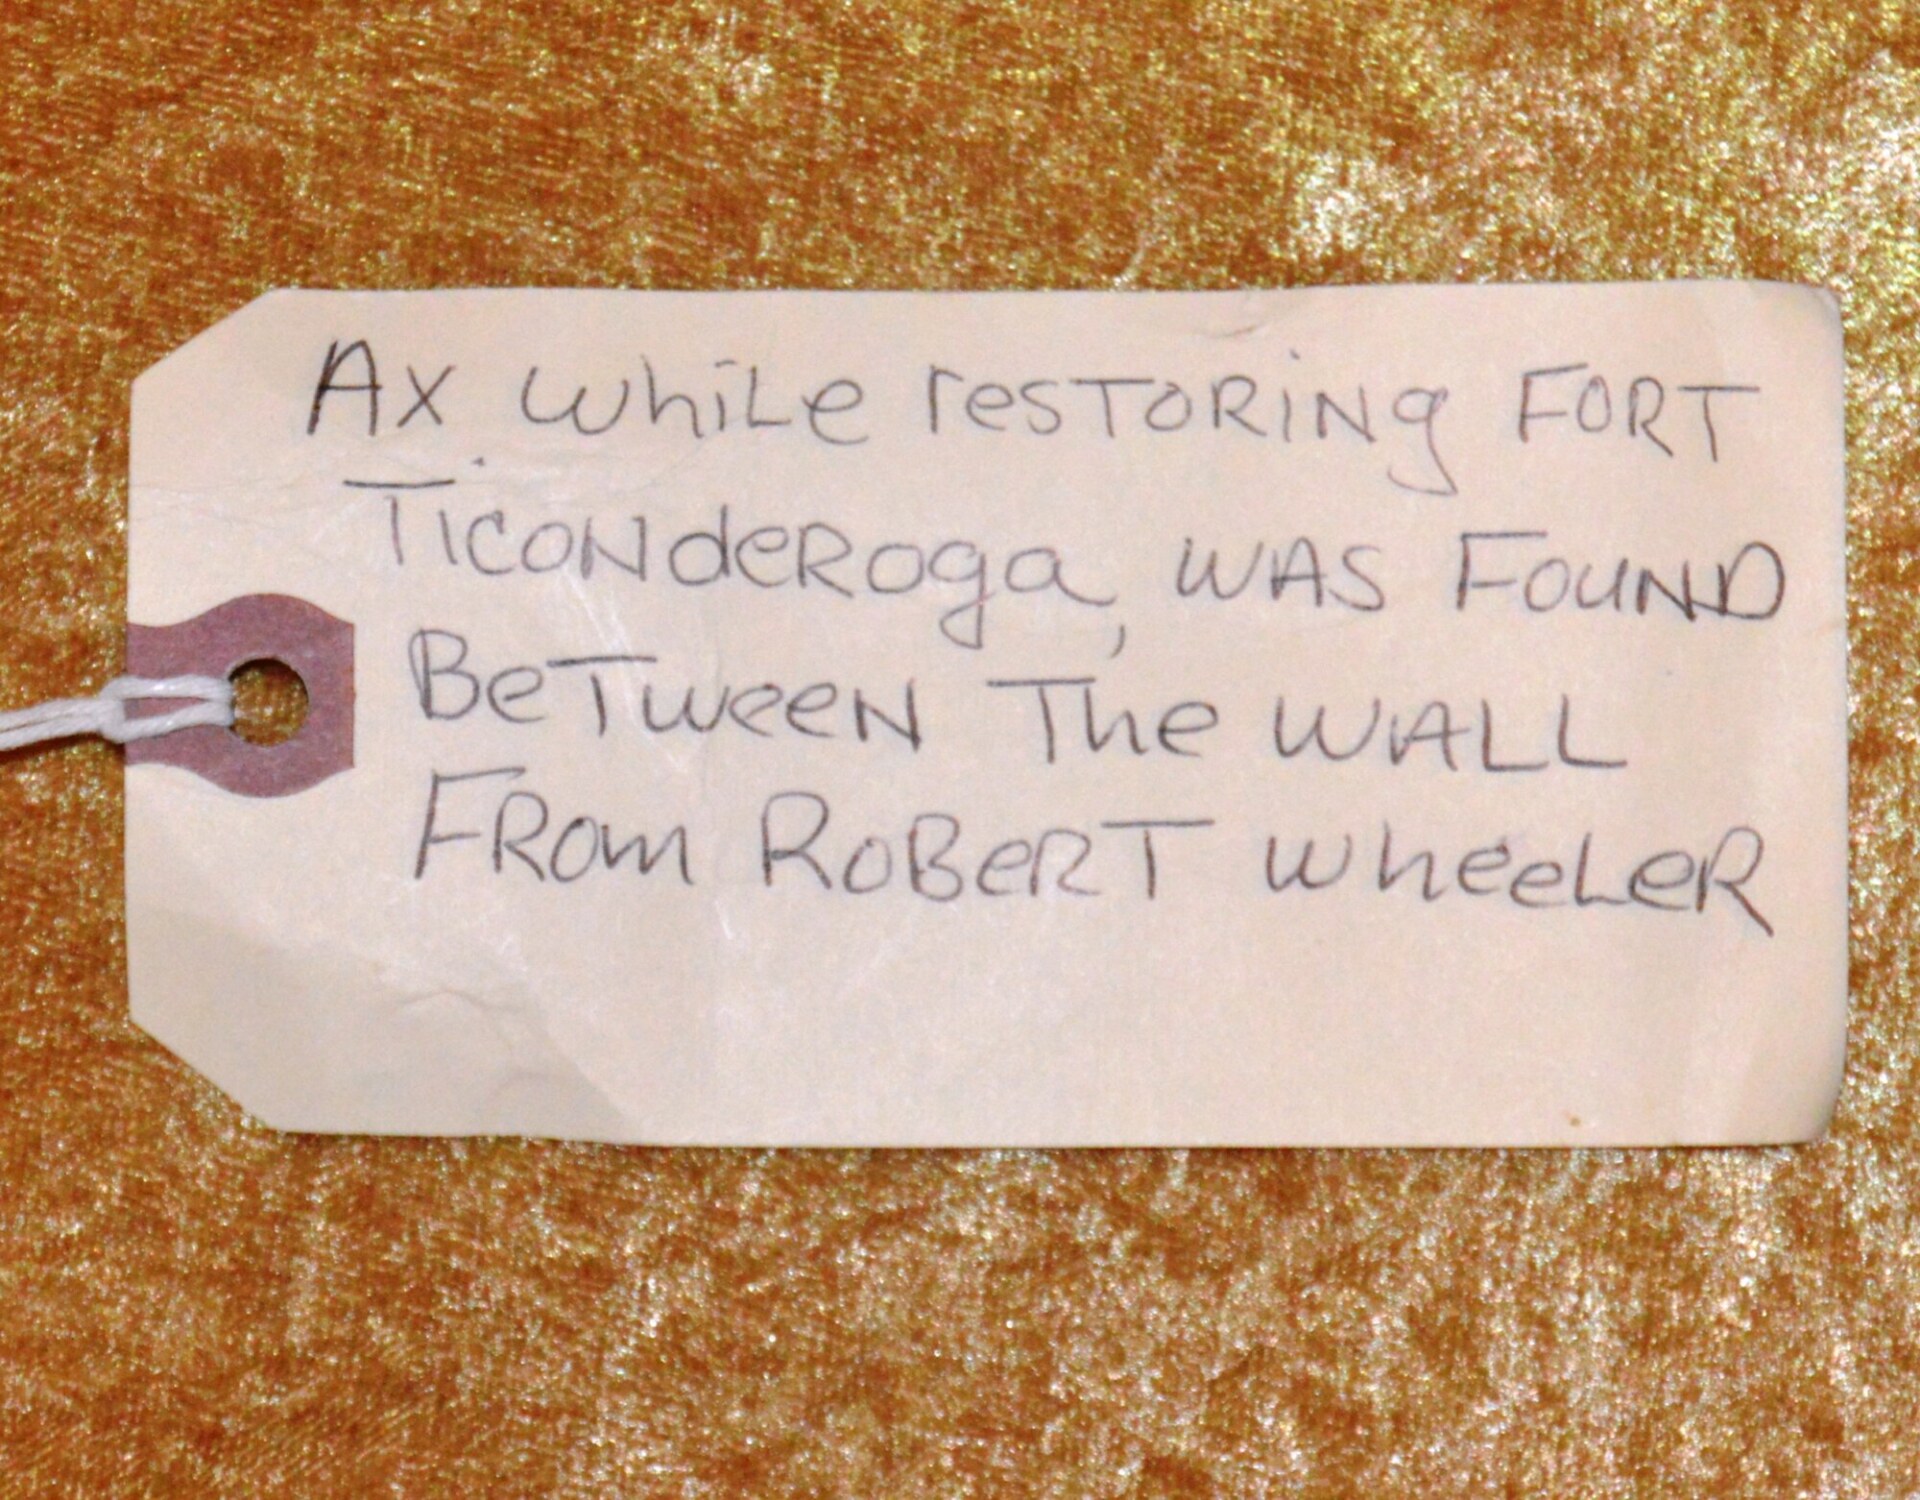 Ax while restoring Fort
Ticonderoga, was Found
Between The Wall
From Robert Wheeler